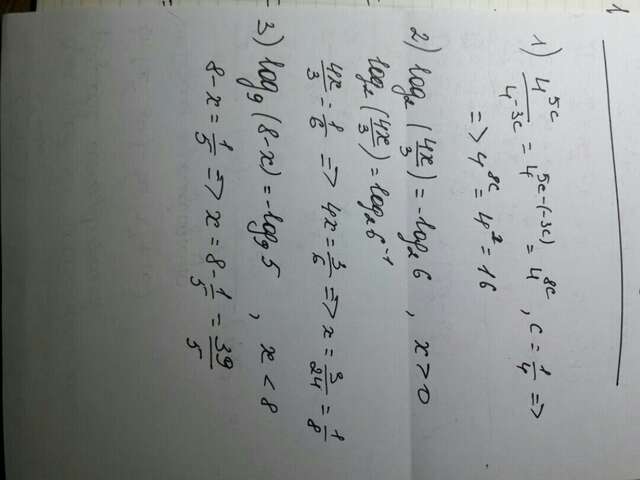 1) 4^5c / 4^-3c = 4^5c-(-3c) = 4^8c , c = 1/4 =>
=> 4^8c = 4^2 = 16
2) log₂ (4x/3) = -log₂ 6 , x > 0
log₂ (4x/3) = log₂ 6^-1
4x/3 = 1/6 => 4x = 3/6 => x = 3/24 = 1/8
3) log₉ (8-x) = -log₉ 5 , x < 8
8-x = 1/5 => x = 8 - 1/5 = 39/5